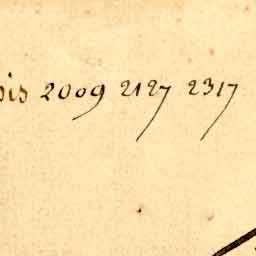 bis 2009 2127 2317